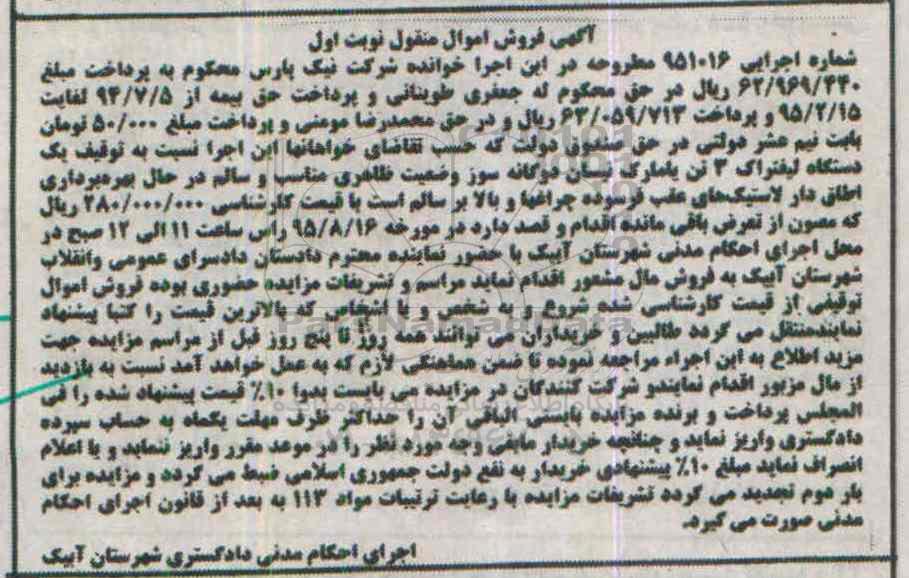 آگهی فروش اموال منقول نوبت اول
شماره اجرایی ۹۵۱۰۱۶ مطروحه در این اجرا خوانده شرکت نیک پارس محکوم به پرداخت مبلغ
۶۲/۹۶۹/۴۴۰ ریال در حق محکوم له جعفری طویتانی و پرداخت حق بیمه از ۹۴/۷/۵ لغایت
۹۵/۲/۱۵ و پرداخت ۶۳/۰۵۹/۷۱۳ ریال و در حق محمدرضا مومنی و پرداخت مبلغ ۵۰/۰۰۰ تومان
بابت نیم عشر دولتی در حق صندوق دولت که حسب تقاضای خواهانها این اجرا نسبت به توقیف یک
دستگاه لیفتراک ۳ تن یامارک نیسان دوگانه سوز وضعیت ظاهری مناسب و سالم در حال بهره‌برداری
اطاق دار لاستیک‌های عقب فرسوده چراغها و بالا بر سالم است با قیمت کارشناسی ۲۸۰/۰۰۰/۰۰۰ ریال
که مصون از تعرض باقی مانده اقدام و قصد دارد در مورخه ۹۵/۸/۱۶ راس ساعت ۱۱ الی ۱۲ صبح در
محل اجرای احکام مدنی شهرستان آبیک با حضور نماینده محترم دادستان دادسرای عمومی وانقلاب
شهرستان آبیک به فروش مال مشعور اقدام نماید مراسم و تشریفات مزایده حضوری بوده فروش اموال
توقیفی از قیمت کارشناسی شده شروع و به شخص و یا اشخاص که بالاترین قیمت را کتبا پیشنهاد
نمایندمنتقل می گردد طالبین و خریداران می توانند همه روز تا پنج روز قبل از مراسم مزایده جهت
مزید اطلاع به این اجراء مراجعه نموده تا ضمن هماهنگی لازم که به عمل خواهد آمد نسبت به بازدید
از مال مزبور اقدام نمایندو شرکت کنندگان در مزایده می بایست بدوا ۱۰٪ قیمت پیشنهاد شده را فی
المجلس پرداخت و برنده مزایده بایستی الباقی آن را حداکثر ظرف مهلت یکماه به حساب سپرده
دادگستری واریز نماید و چنانچه خریدار مابقی وجه مورد نظر را در موعد مقرر واریز ننماید و یا اعلام
انصراف نماید مبلغ ۱۰٪ پیشنهادی خریدار به نفع دولت جمهوری اسلامی ضبط می گردد و مزایده برای
بار دوم تجدید می گردد تشریفات مزایده با رعایت ترتیبات مواد ۱۱۳ به بعد از قانون اجرای احکام
مدنی صورت می گیرد.
اجرای احکام مدنی دادگستری شهرستان آبیک
ParsNamadData